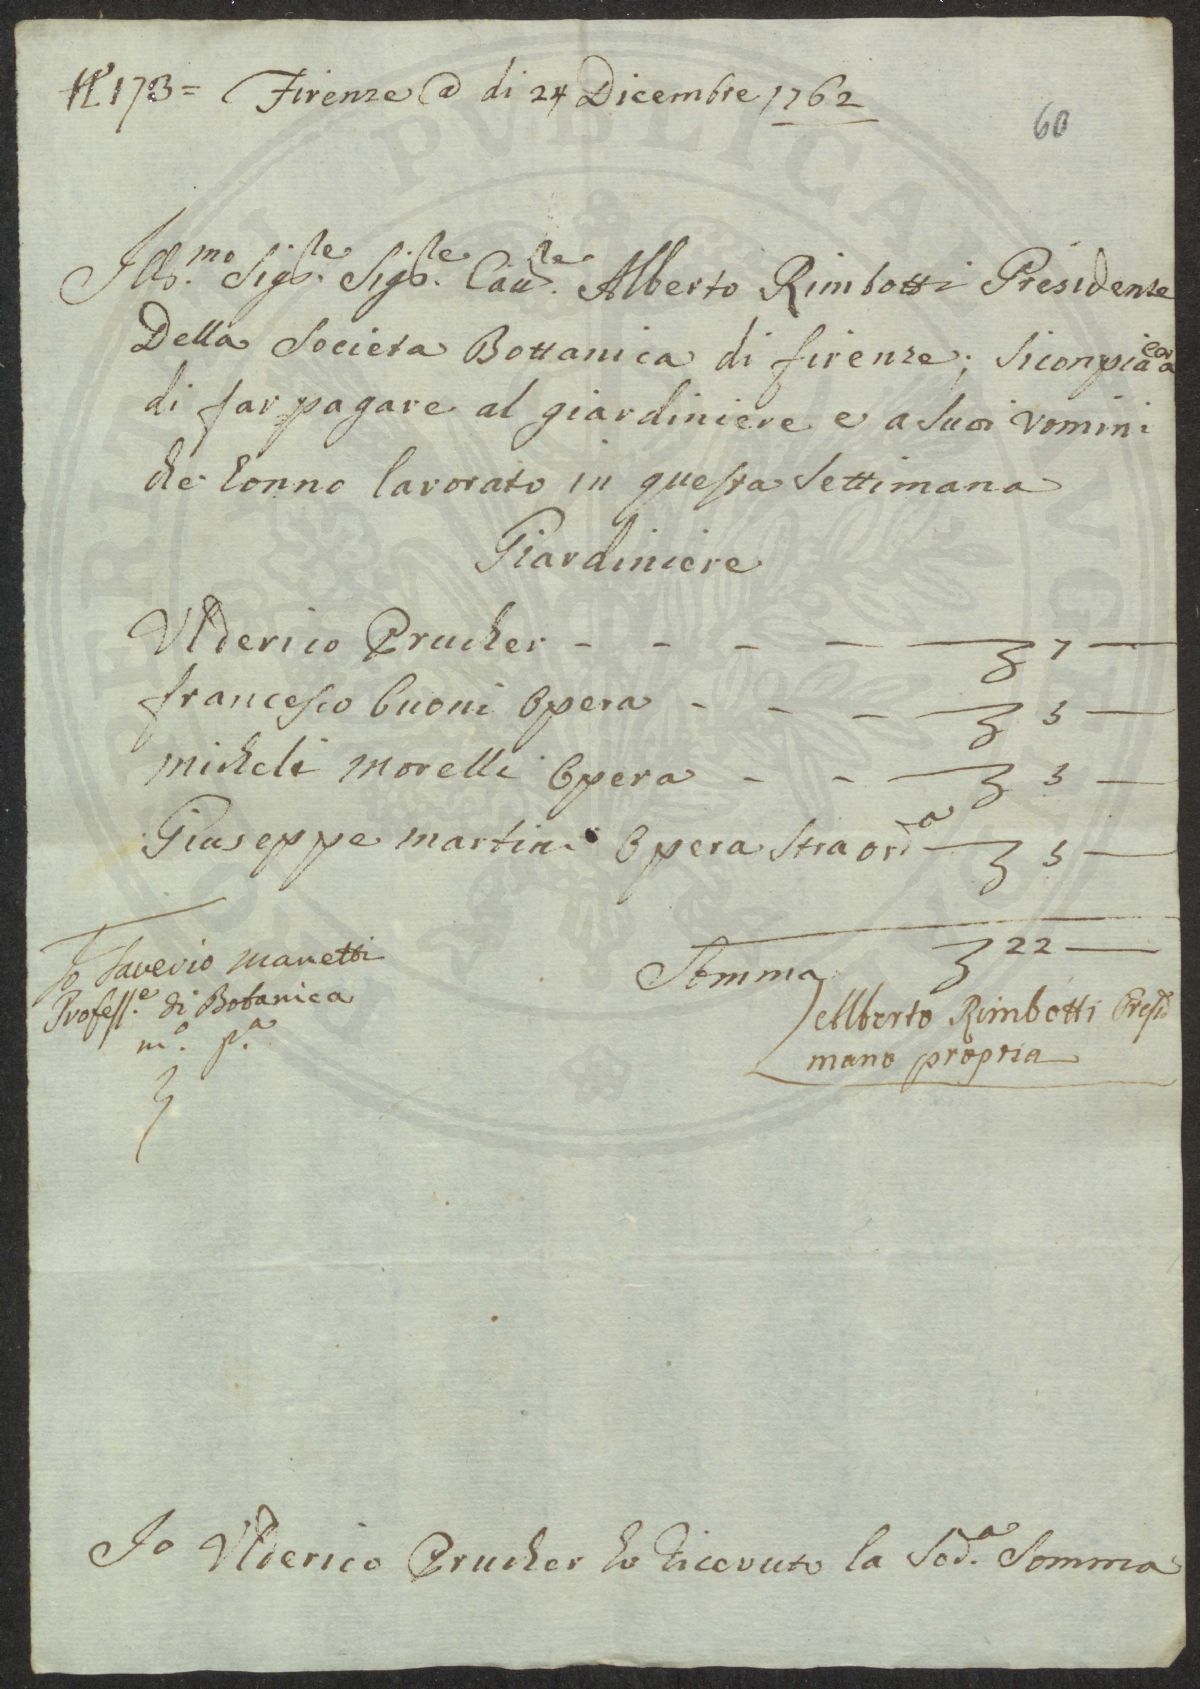 N° 173 = Firenze a di 24 Dicembre 1762
60
Ill.mo Sig.re Sig.re Cau.re Alberto Rimbotti Presidente
Della Societa Bottanica di firenze; si conpiacera
di far pagare al giardiniere e a suoi vomini
che honno lavorato in questa settimana
Giardiniere
Vlderico Prucher - - - — £ 7 —
francesco buoni opera - - - £ 5 —
micheli morelli opera - - £ 5 —
Giuseppe martini opera straord.a £ 5 —
Somma £ 22 —
Io Saverio Manetti
Profess.e di Botanica
m.o p.a
Alberto Rimbotti Presid
mano propria
Io Vlderico Prucher ho ricevuto la Sod.a Somma